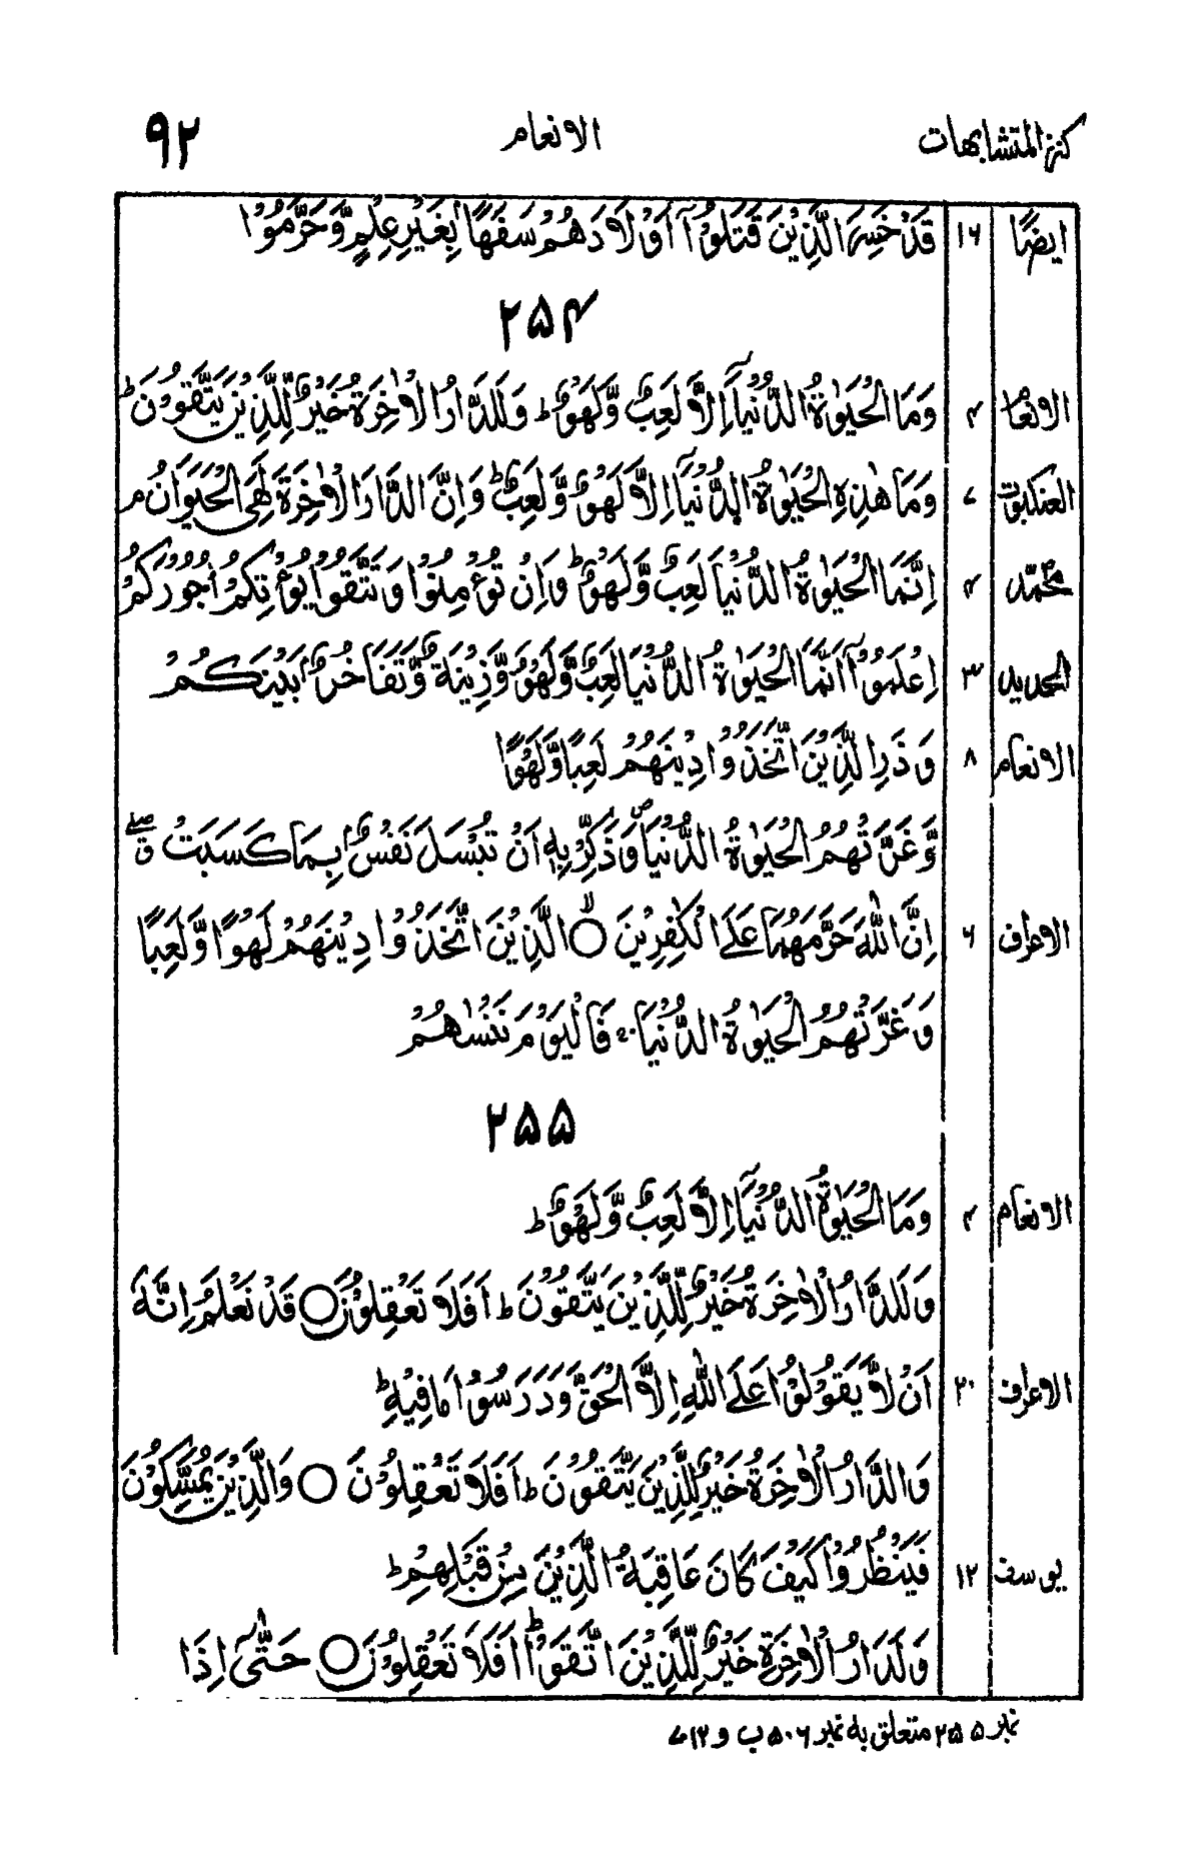 كنز المتشابهات الانعام ۹۲
ايضًا ۱۶ قَدْ خَسِرَ الَّذِيْنَ قَتَلُوْۤا اَوْلَادَهُمْ سَفَهًۢا بِغَيْرِ عِلْمٍ وَّحَرَّمُوْا
۲۵۴
الانعام ۴ وَمَا الْحَيٰوةُ الدُّنْيَاۤ اِلَّا لَعِبٌ وَّلَهْوٌ ؕ وَلَلدَّارُ الْاٰخِرَةُ خَيْرٌ لِّلَّذِيْنَ يَتَّقُوْنَ ؕ
العنكبوت ۷ وَمَا هٰذِهِ الْحَيٰوةُ الدُّنْيَاۤ اِلَّا لَهْوٌ وَّلَعِبٌ ؕ وَاِنَّ الدَّارَ الْاٰخِرَةَ لَهِيَ الْحَيَوَانُ ۘ
محمّد ۴ اِنَّمَا الْحَيٰوةُ الدُّنْيَا لَعِبٌ وَّلَهْوٌ ؕ وَاِنْ تُؤْمِنُوْا وَتَتَّقُوْا يُؤْتِكُمْ اُجُوْرَكُمْ
الحديد ۳ اِعْلَمُوْۤا اَنَّمَا الْحَيٰوةُ الدُّنْيَا لَعِبٌ وَّلَهْوٌ وَّزِيْنَةٌ وَّتَفَاخُرٌۢ بَيْنَكُمْ
الانعام ۸ وَذَرِ الَّذِيْنَ اتَّخَذُوْا دِيْنَهُمْ لَعِبًا وَّلَهْوًا
وَّغَرَّتْهُمُ الْحَيٰوةُ الدُّنْيَا وَذَكِّرْ بِهٖۤ اَنْ تُبْسَلَ نَفْسٌۢ بِمَا كَسَبَتْ ۖق
الاعراف ۶ اِنَّ اللّٰهَ حَرَّمَهُمَا عَلَى الْكٰفِرِيْنَ ۙ○ الَّذِيْنَ اتَّخَذُوْا دِيْنَهُمْ لَهْوًا وَّلَعِبًا
وَغَرَّتْهُمُ الْحَيٰوةُ الدُّنْيَا ۚ فَالْيَوْمَ نَنْسٰهُمْ
۲۵۵
الانعام ۴ وَمَا الْحَيٰوةُ الدُّنْيَاۤ اِلَّا لَعِبٌ وَّلَهْوٌ ؕ
وَلَلدَّارُ الْاٰخِرَةُ خَيْرٌ لِّلَّذِيْنَ يَتَّقُوْنَ ؕ اَفَلَا تَعْقِلُوْنَ ○ قَدْ نَعْلَمُ اِنَّهٗ
الاعراف ۲۰ اَنْ لَّا يَقُوْلُوْا عَلَى اللّٰهِ اِلَّا الْحَقَّ وَدَرَسُوْا مَا فِيْهِ ؕ
وَالدَّارُ الْاٰخِرَةُ خَيْرٌ لِّلَّذِيْنَ يَتَّقُوْنَ ؕ اَفَلَا تَعْقِلُوْنَ ○ وَالَّذِيْنَ يُمَسِّكُوْنَ
يوسف ۱۲ فَيَنْظُرُوْا كَيْفَ كَانَ عَاقِبَةُ الَّذِيْنَ مِنْ قَبْلِهِمْ ؕ
وَلَدَارُ الْاٰخِرَةِ خَيْرٌ لِّلَّذِيْنَ اتَّقَوْا ؕ اَفَلَا تَعْقِلُوْنَ ○ حَتّٰىۤ اِذَا
نمبر ۲۵۵ متعلق به نمبر ۵۰۶ ب و